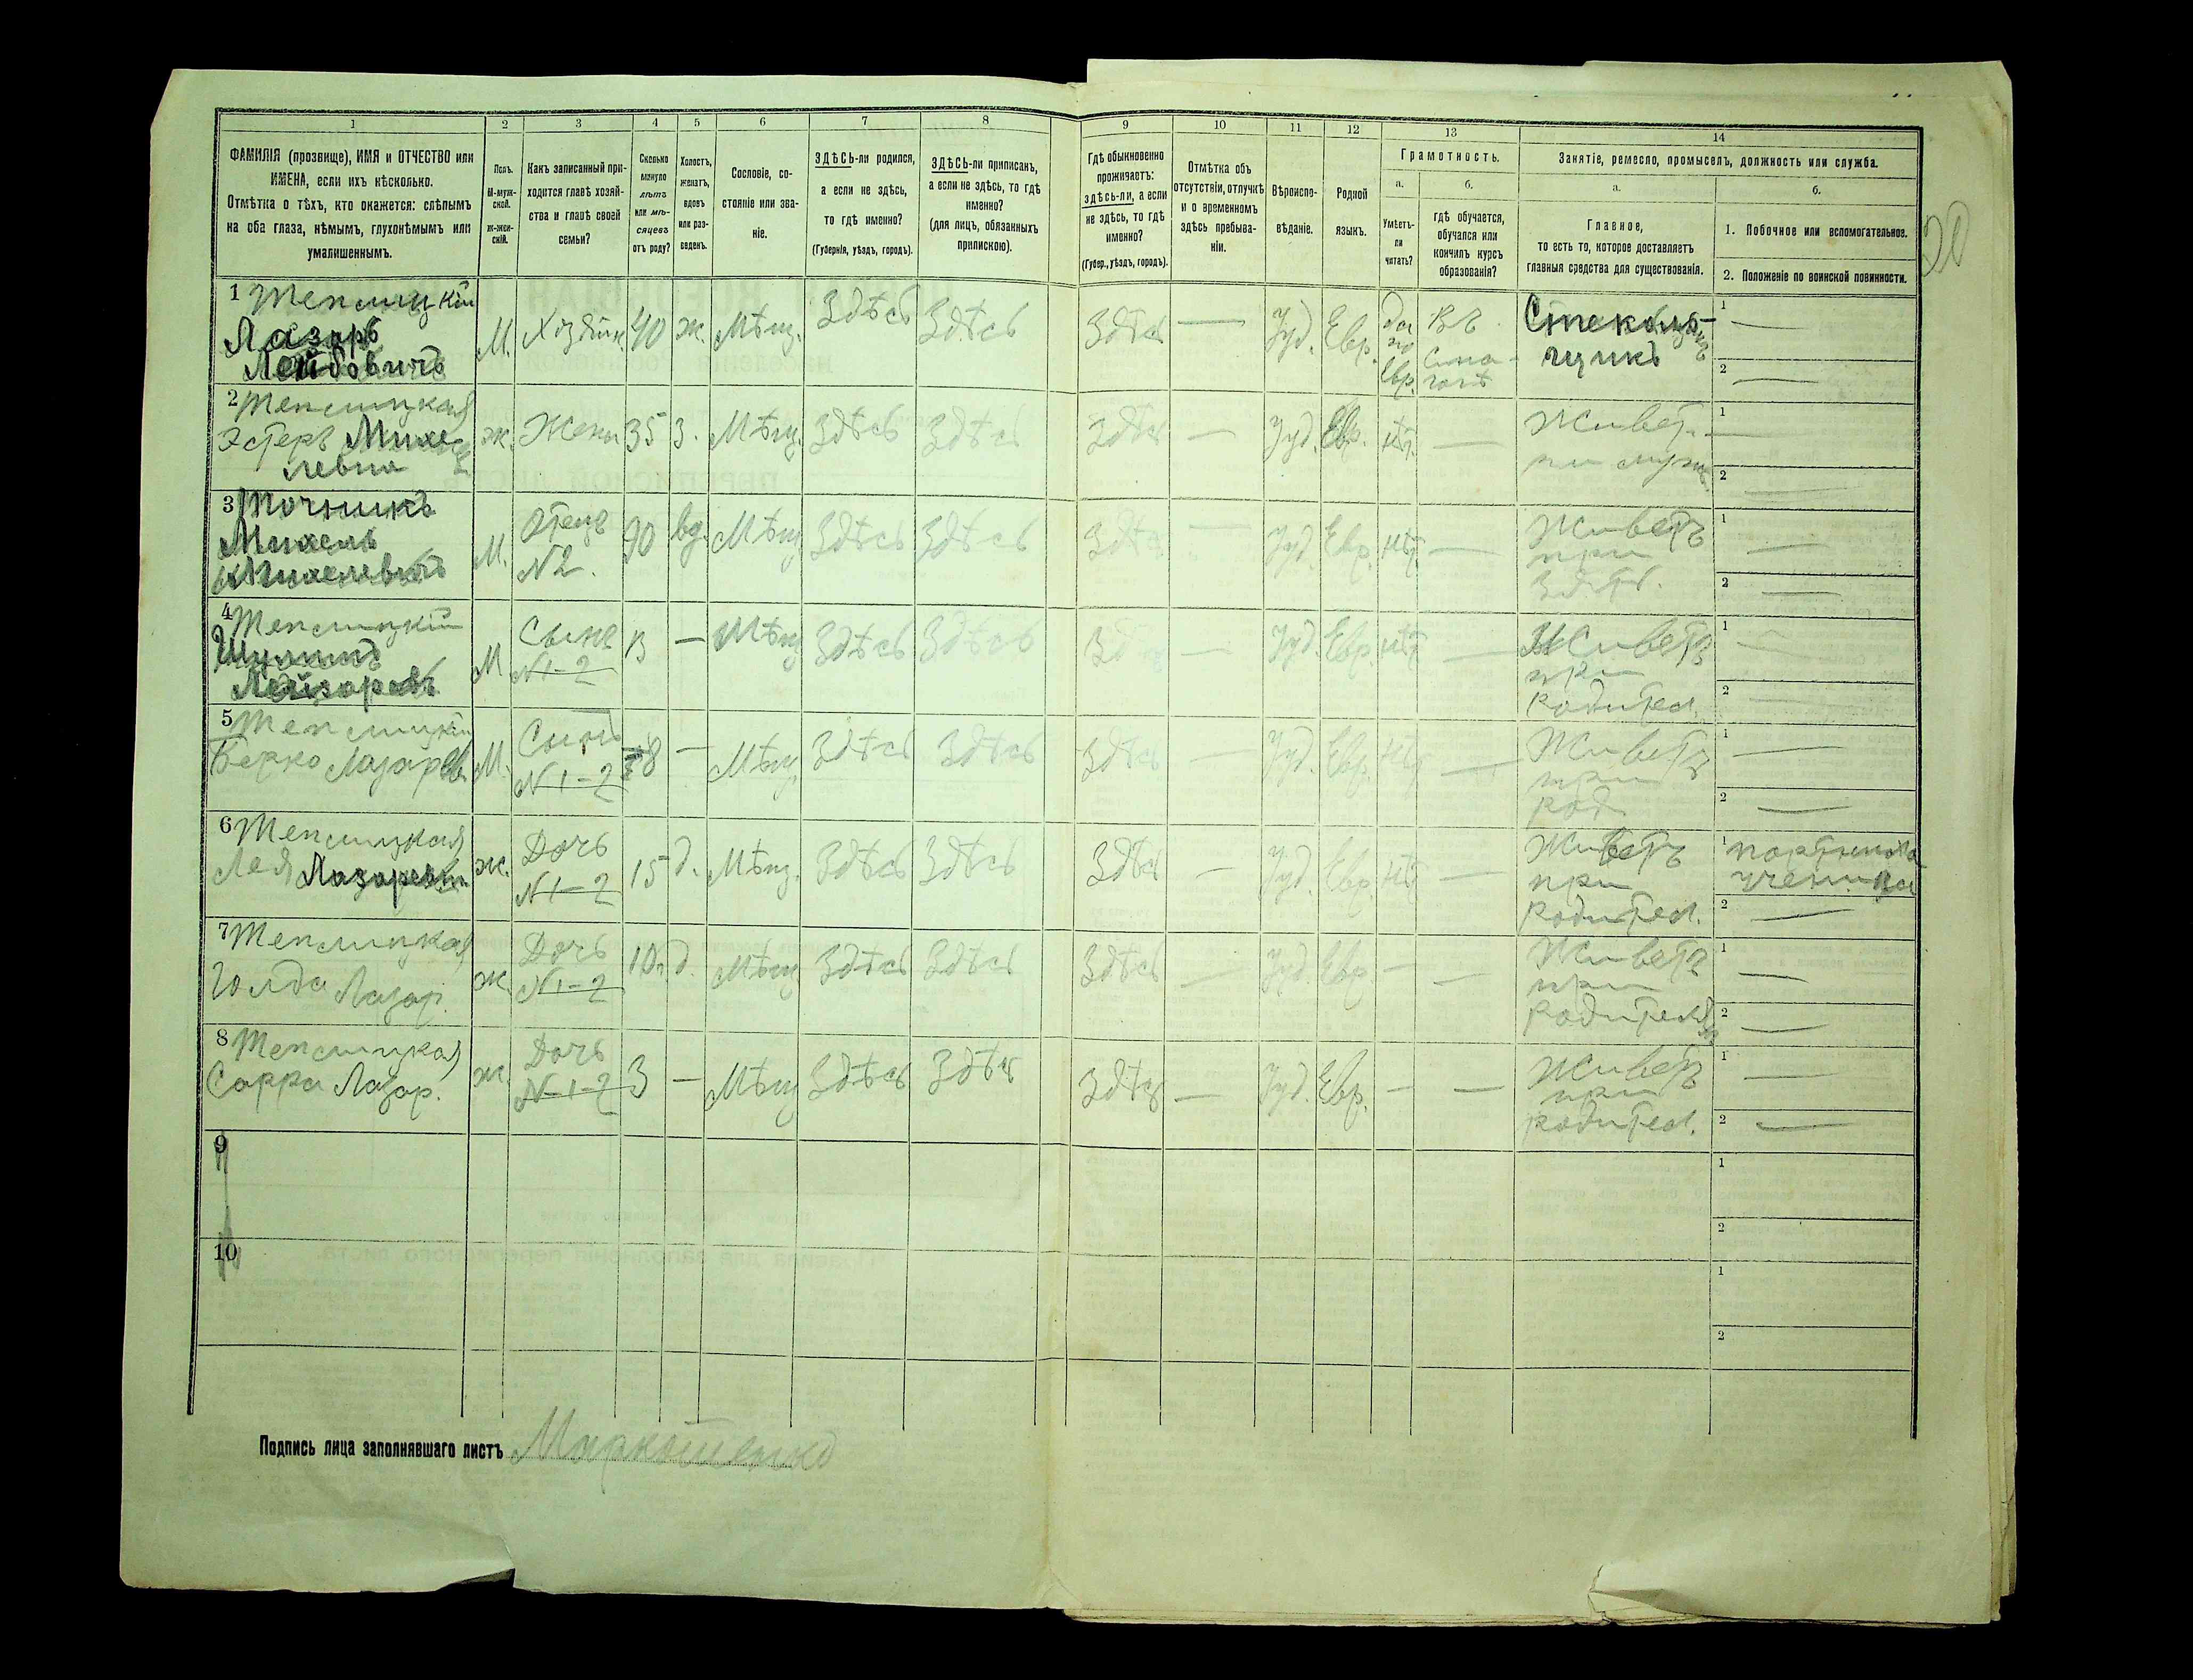 1 2 3 4 5 6 7 8 9 10 11 12 13 14
ФАМИЛІЯ (прозвище), ИМЯ и ОТЧЕСТВО или
ИМЕНА, если ихъ нѣсколько.
Отмѣтка о тѣхъ, кто окажется: слѣпымъ
на оба глаза, нѣмымъ, глухонѣмымъ или
умалишеннымъ.
Полъ.
М-муж-
ской.
ж-жен-
скій.
Какъ записанный при-
ходится главѣ хозяй-
ства и главѣ своей
семьи?
Сколько
минуло
лѣтъ
или мѣ-
сяцевъ
отъ роду?
Холостъ,
женатъ,
вдовъ
или раз-
веденъ.
Сословіе, со-
стояніе или зва-
ніе.
ЗДѢСЬ-ли родился,
а если не здѣсь,
то гдѣ именно?
(Губернія, уѣздъ, городъ).
ЗДѢСЬ-ли приписанъ,
а если не здѣсь, то гдѣ
именно?
(для лицъ, обязанныхъ
припискою).
Гдѣ обыкновенно
проживаетъ:
здѣсь-ли, а если
не здѣсь, то гдѣ
именно?
(Губер., уѣздъ, городъ).
Отмѣтка объ
отсутствіи, отлучкѣ
и о временномъ
здѣсь пребыва-
ніи.
Вѣроиспо-
вѣданіе.
Родной
языкъ.
Грамотность.
а.
Умѣетъ-
ли
читать?
б.
гдѣ обучается,
обучался или
кончилъ курсъ
образованія?
Занятіе, ремесло, промыселъ, должность или служба.
а.
Главное,
то есть то, которое доставляетъ
главныя средства для существованія.
б.
1. Побочное или вспомогательное.
2. Положеніе по воинской повинности.
20
1
Лазарь
Лейбовичъ
М. Хозяин. 40 ж. Мѣщ. Здѣсь Здѣсь Здѣсь — Іуд. Евр.
да
по
Евр.
Въ
сина-
гогѣ
1 —
2 —
2
Эстеръ Михе
левна
ж. Жена 35 з. Мѣщ. Здѣсь Здѣсь Здѣсь — Іуд. Евр. нѣт. —
Живет.
при муж
1 —
2 —
3 Точникъ
Михель
М. Отецъ 90 вд. Мѣщ Здѣсь Здѣсь Здѣсь — Іуд. Евр. нѣт —
N2.
Живетъ
при
зятѣ.
1 —
2 —
4
М Сынъ 13 — Мѣщ Здѣсь Здѣсь — Іуд. Евр. нѣт —
N1-2
Живетъ
при
родител.
1 —
2 —
5
Берко Лазарев
М. Сынъ 8 — Мѣщ Здѣсь Здѣсь Здѣсь — Іуд. Евр. нѣт —
N1-2
Живетъ
при
род
1 —
2 —
6
Лея Лазаревн
ж. Дочь 15 д. Мѣщ. Здѣсь Здѣсь Здѣсь — Іуд. Евр. нѣт —
N1-2
Живетъ
при
родител.
1
ученица
2 —
7
Голда Лазар.
ж. Дочь 10 д. Мѣщ Здѣсь Здѣсь Здѣсь — Іуд. Евр. — —
N1-2
Живетъ
при
1 —
2 —
8
Сарра Лазар.
ж. Дочь 3 — Мѣщ Здѣсь Здѣсь Здѣсь — Іуд. Евр. — —
N1-2
Живетъ
при
родител.
1 —
2 —
9
1
2
10
1
2
Подпись лица заполнявшаго листъ